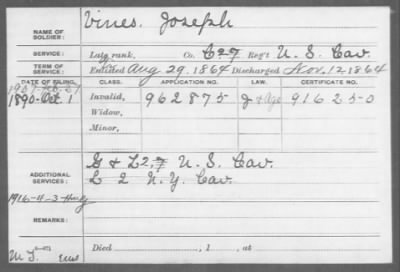 NAME OF SOLDIER: Vines, Joseph
SERVICE: Late rank, Co. C. 27 Reg't U. S. Cav.
TERM OF SERVICE: Enlisted Aug 29, 1864 Discharged Nov. 12 1864
DATE OF FILING. CLASS. APPLICATION NO. LAW. CERTIFICATE NO.
1890-Oct. 1 Invalid, 962875 916250
Widow,
Minor,
ADDITIONAL SERVICES: G & L 27 U. S. Cav.
L 2 N. Y. Cav.
1916-11-3
REMARKS:
Died , 1 , at